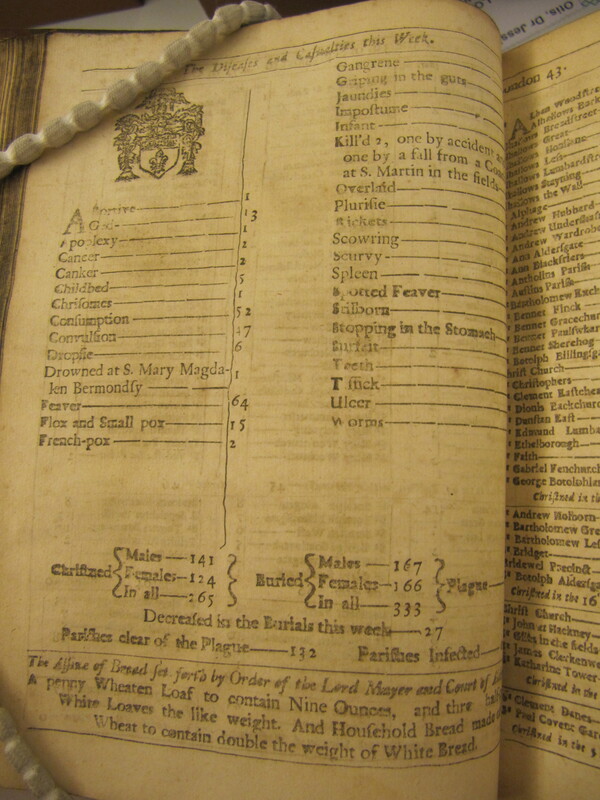 Otis, Dr Jess
The Diseases and Casualties this Week.
Abortive 1
Aged 13
Apoplexy 1
Cancer 2
Canker 2
Childbed 5
Chrisomes 1
Consumption 52
Convulsion 47
Dropsie 6
Drowned at S. Mary Magda-
len Bermondsy 1
Feaver 64
Flox and Small pox 15
French-pox 2
Gangrene
Griping in the guts
Jaundies
Impostume
Infant
Kill'd 2, one by accident
one by a fall from a
at S. Martin in the fields
Overlaid
Plurisie
Rickets
Scowring
Scurvy
Spleen
Spotted Feaver
Stilborn
Stopping in the Stomach
Surfeit
Teeth
Tissick
Ulcer
Worms
Christned { Males 141
Females 124
In all 265 }
Buried { Males 167
Females 166
In all 333 } Plague
Decreased in the Burials this week 27
Parishes clear of the Plague 132 Parishes Infected
The Assise of Bread set forth by Order of the Lord Mayer and Court of
A penny Wheaten Loaf to contain Nine Ounces, and thre half
White Loaves the like weight. And Houshold Bread made
Wheat to contain double the weight of White Bread.
ondon 43.
Alban Woodstre
Alhallows Bark
Breadstreet
Great
Honilane
Less
Lumbardstre
Stayning
the Wall
Alphage
Andrew Hubbard
Andrew Undershaft
Andrew Wardrobe
Ann Aldersgate
Ann Blackfriers
Antholins Parish
Austins Parish
Bartholomew Exch
Bennet Finck
Bennet Gracechur
Bennet Paulswharf
Bennet Sherehog
Botolph Billingsg
hrist Church
Christophers
Clement Eastchea
Dionis Backchurch
Dunstan East
Edmund Lumba
Ethelborough
Faith
Gabriel Fenchurch
George Botolphlan
Christned in the
Andrew Holborn
Bartholomew Gre
Bartholomew Les
Bridget
Bridewel Precinct
Botolph Aldersga
Christned in the 16
Christ Church
John at Hackney
Giles in the fields
James Clerkenwe
Katharine Tower
Christned in the
Clement Danes
Paul Covent Gar
Christned in the 5